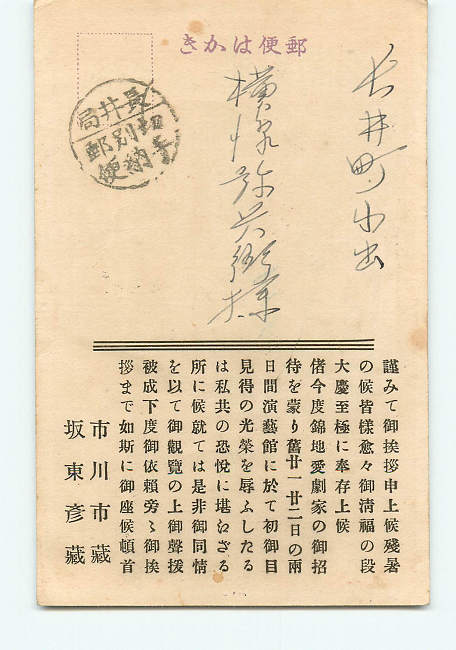 郵便はかき
長井局
郵別切
便納手
長井町小出
横澤弥兵衛様
謹みて御挨拶申上候殘暑
の候皆樣愈々御淸福の段
大慶至極に奉存上候
偖今度錦地愛劇家の御招
待を蒙り舊廿一廿二日の兩
日間演藝館に於て初御目
見得の光榮を辱ふしたる
は私共の恐悅に堪江ざる
所に候就ては是非御同情
を以て御觀覽の上御聲援
被成下度御依賴旁々御挨
拶まで如斯に御座候頓首
市川市藏
坂東彥藏